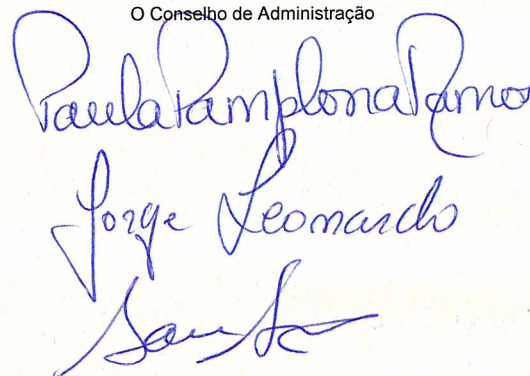 O Conselho de Administração
Paula Pamplona Ramos
Jorge Leonardo